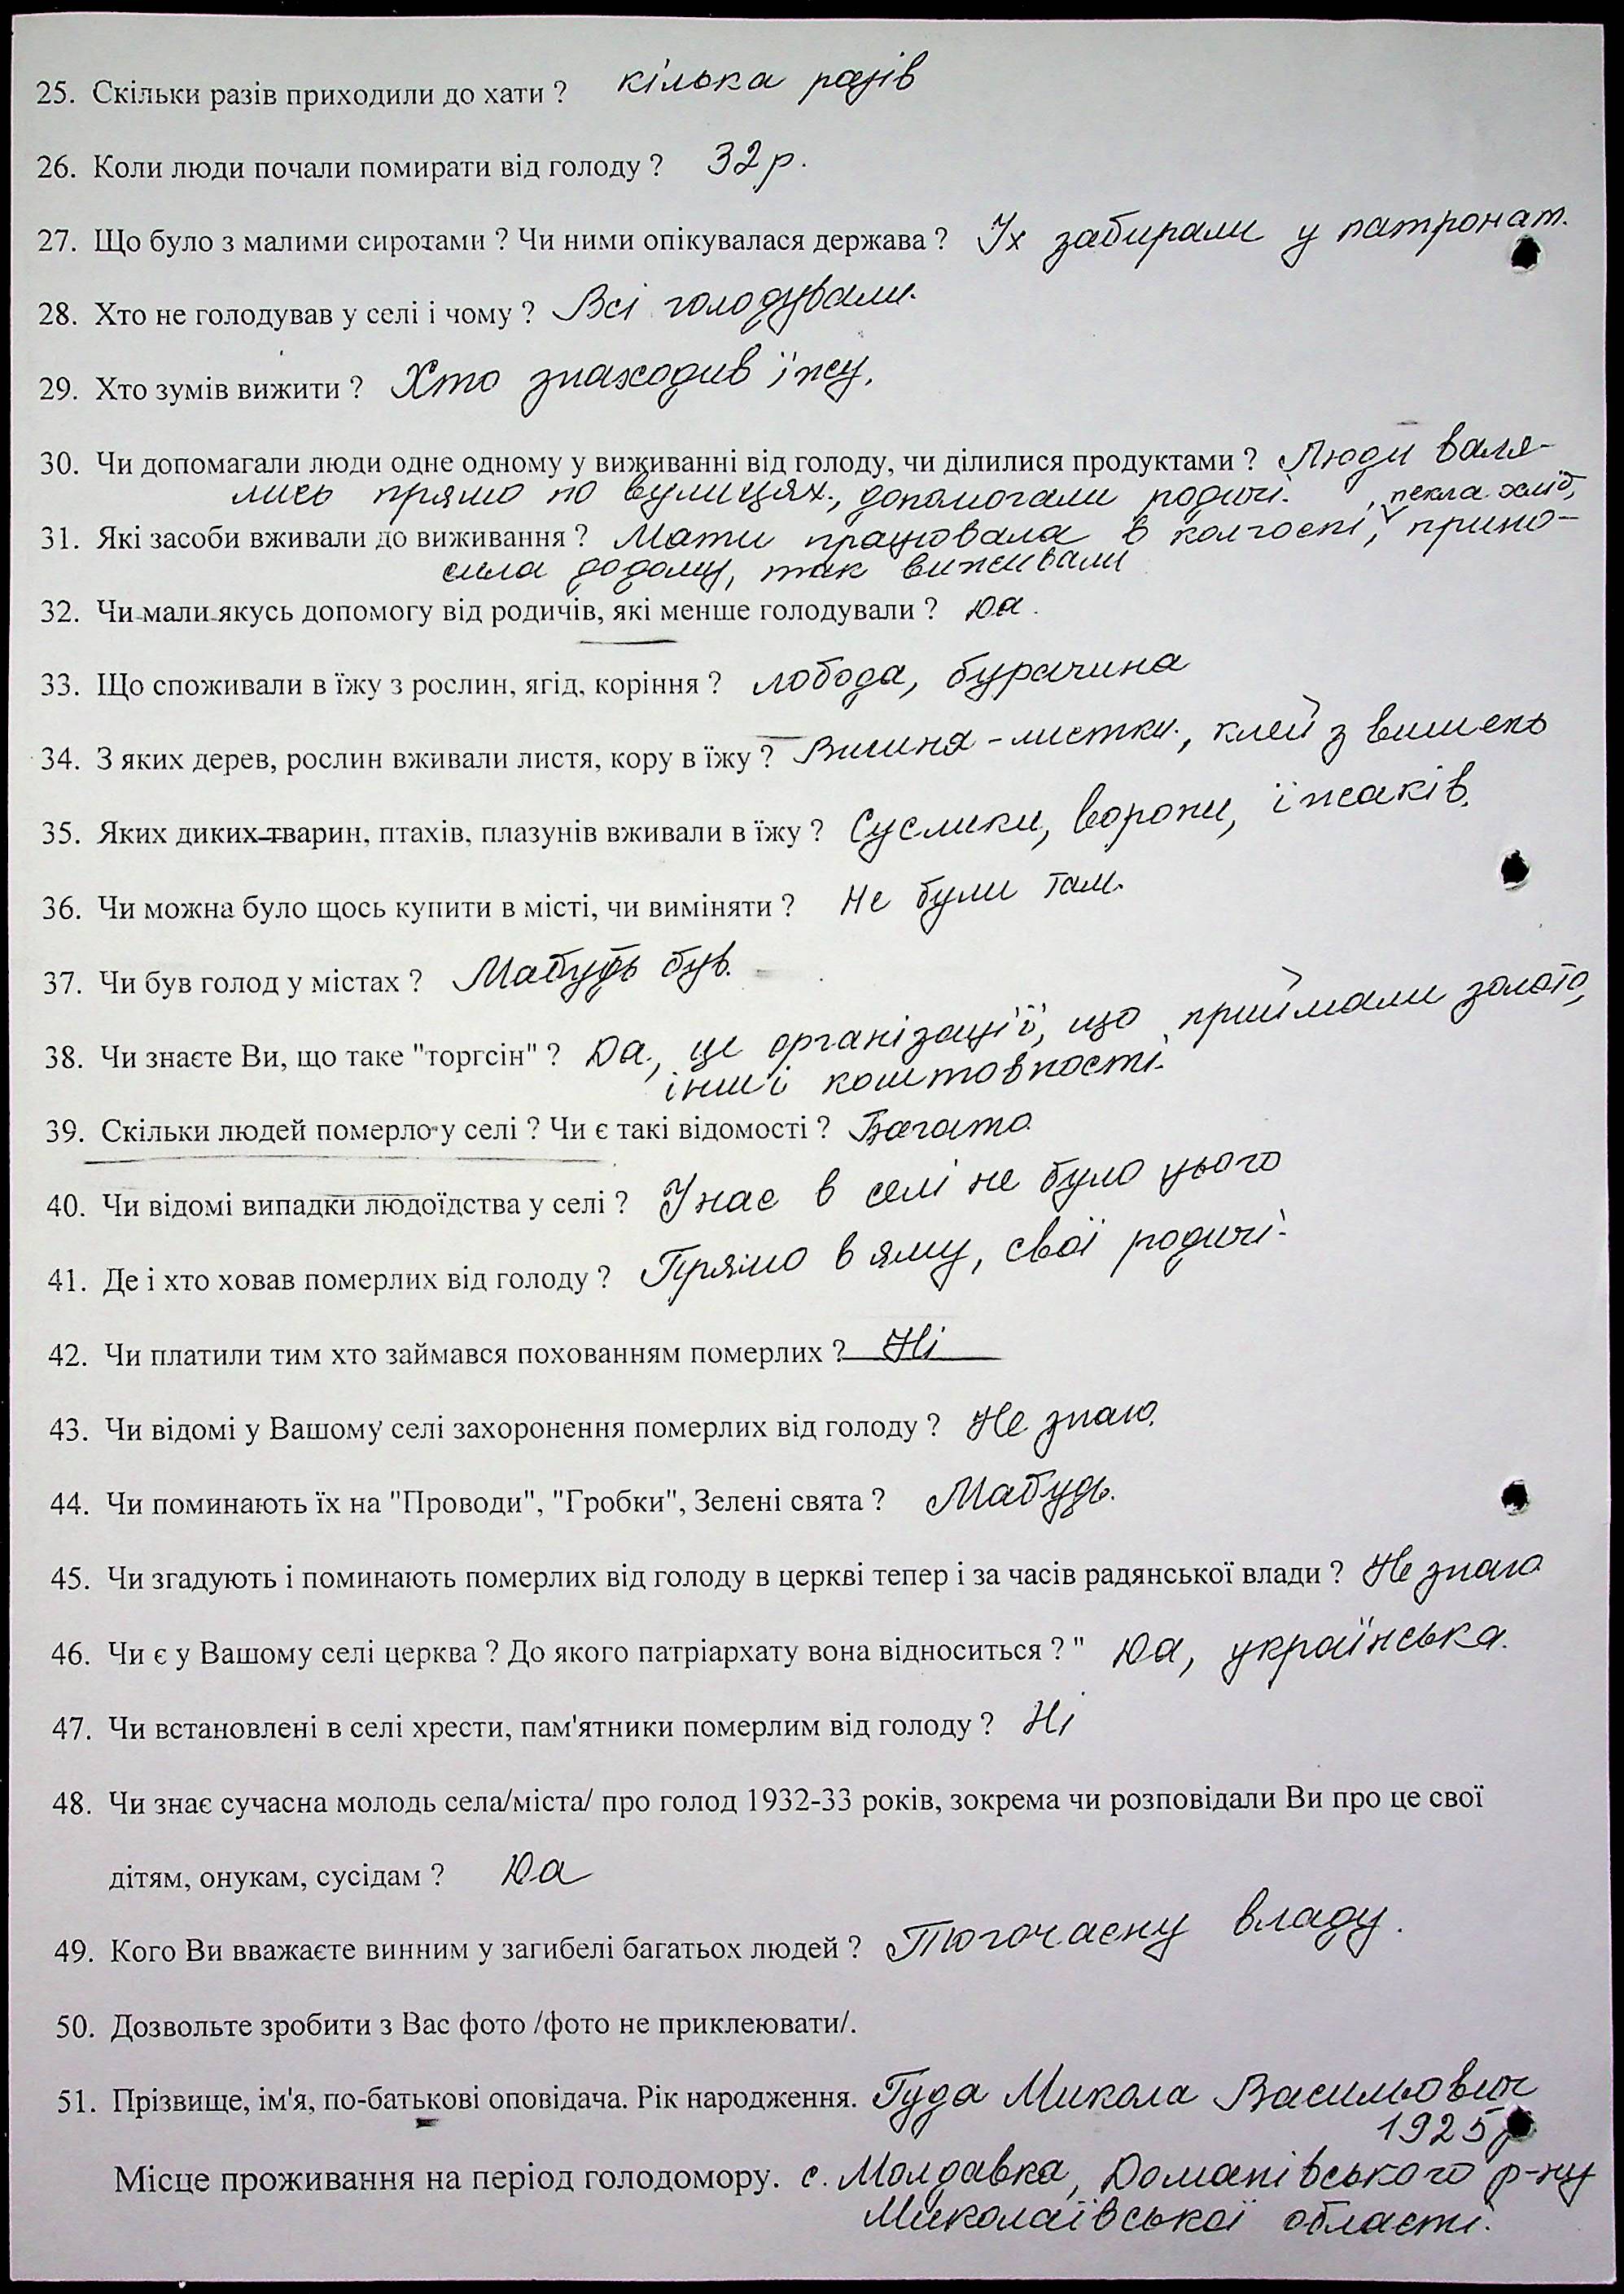 25. Скільки разів приходили до хати ? кілька разів
26. Коли люди почали помирати від голоду ? 32 р.
27. Що було з малими сиротами ? Чи ними опікувалася держава ? Їх забирали у патронат.
28. Хто не голодував у селі і чому ? Всі голодували.
29. Хто зумів вижити ? Хто знаходив їжу.
30. Чи допомагали люди одне одному у виживанні від голоду, чи ділилися продуктами ? Люди валя-
лись прямо по вулицях., допомогали родичі.
31. Які засоби вживали до виживання ? Мати працювала в колгоспі, пекла хліб, прино-
сила додому, так виживали
32. Чи мали якусь допомогу від родичів, які менше голодували ? Да.
33. Що споживали в їжу з рослин, ягід, коріння ? лобода, бурачина
34. З яких дерев, рослин вживали листя, кору в їжу ? Вишня - листки., клей з вишень
35. Яких диких тварин, птахів, плазунів вживали в їжу ? Суслики, ворони, їжаків.
36. Чи можна було щось купити в місті, чи виміняти ? Не були там.
37. Чи був голод у містах ? Мабудь був.
38. Чи знаєте Ви, що таке "торгсін" ? Да., це організації, що приймали золото,
інші коштовності.
39. Скільки людей померло у селі ? Чи є такі відомості ? Багато.
40. Чи відомі випадки людоїдства у селі ? У нас в селі не було цього
41. Де і хто ховав померлих від голоду ? Прямо в яму, свої родичі.
42. Чи платили тим хто займався похованням померлих ? Ні
43. Чи відомі у Вашому селі захоронення померлих від голоду ? Не знаю.
44. Чи поминають їх на "Проводи", "Гробки", Зелені свята ? Мабудь.
45. Чи згадують і поминають померлих від голоду в церкві тепер і за часів радянської влади ? Не знаю
46. Чи є у Вашому селі церква ? До якого патріархату вона відноситься ? " Да, українська.
47. Чи встановлені в селі хрести, пам'ятники померлим від голоду ? Ні
48. Чи знає сучасна молодь села/міста/ про голод 1932-33 років, зокрема чи розповідали Ви про це свої
дітям, онукам, сусідам ? Да
49. Кого Ви вважаєте винним у загибелі багатьох людей ? Тогочасну владу.
50. Дозвольте зробити з Вас фото /фото не приклеювати/.
51. Прізвище, ім'я, по-батькові оповідача. Рік народження. Гуда Микола Васильович
1925 р
Місце проживання на період голодомору. с. Молдавка, Доманівського р-ну
Миколаївської області.